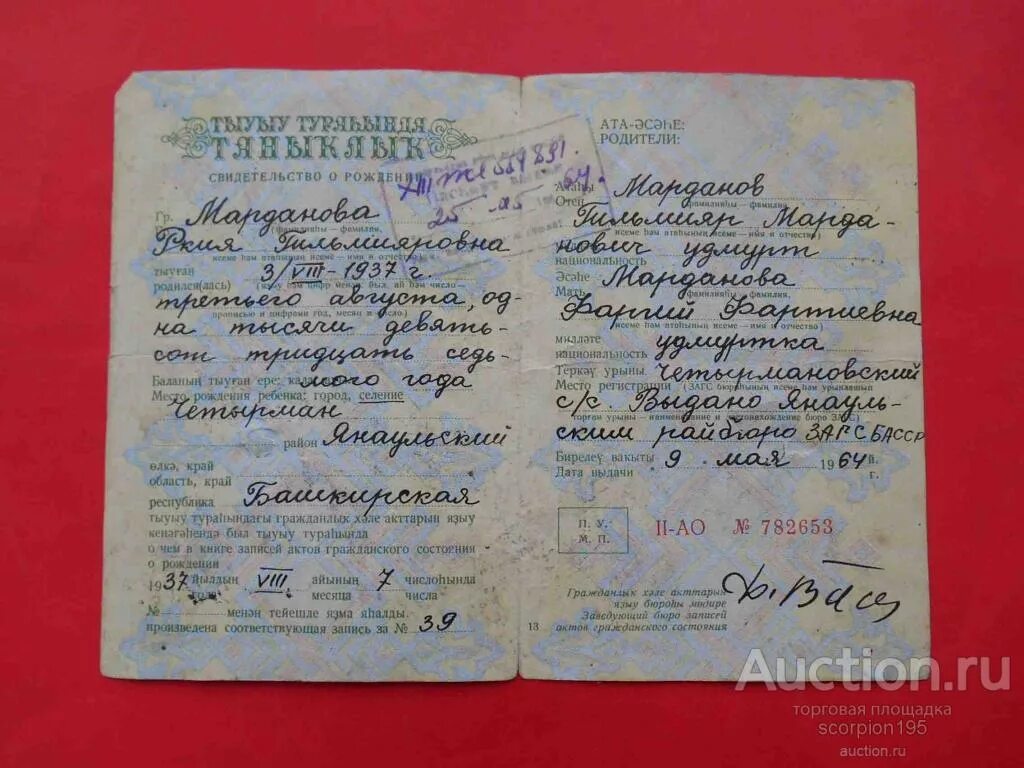 ТЫУЫУ ТУРАҺЫНДА
ТАНЫКЛЫК
СВИДЕТЕЛЬСТВО О РОЖДЕНИИ
XIII ЖЕ 559891.
25 05 64.
Гр. Марданова
(фамилияһы – фамилия,
Ркия Гильмияровна
исеме һәм атаһының исеме – имя и отчество)
тыуған 3/VIII-1937 г.
родился(лась)
третьего августа, од-
прописью и цифрами год, месяц и число)
на тысячи девять-
сот тридцать седь-
Баланың тыуған ере:
мого года
Место рождения ребенка: город, селение
Четырман
район Янаульский
өлкә, край
область, край
республика Башкирская
тыуыу тураһындағы гражданлык хәле акттарын языу
кенәгәһендә был тыуыу тураһында
о чем в книге записей актов гражданского состояния
о рождении
1937 йылдың VIII айының 7 числоһында
года месяца числа
№ менән тейешле язма яһалды.
произведена соответствующая запись за № 39
АТА-ӘСӘҺЕ:
РОДИТЕЛИ:
Атаһы Марданов
Отец (фамилияһы – фамилия,
Гильмияр Марда-
нович удмурт
исеме һәм атаһының исеме – имя и отчество)
национальность
Әсәһе Марданова
Мать (фамилияһы – фамилия,
Фаргий Фартиевна
(исеме һәм атаһының исеме – имя и отчество)
милләте удмуртка
национальность
Теркәү урыны. Четырмановский
Место регистрации (ЗАГС бюроһының исеме һәм урынлашкан
с/с. Выдано Янауль-
торған урыны – наименование и местонахождение бюро ЗАГС)
ским райбюро ЗАГС БАССР
Бирелеү вакыты 9 мая 1964 й.
Дата выдачи г.
П. У.
М. П.
II-АО № 782653
Гражданлык хәле акттарын
языу бюроһы мөдире
Заведующий бюро записей
актов гражданского состояния
13
Auction.ru
торговая площадка
scorpion195
auction.ru